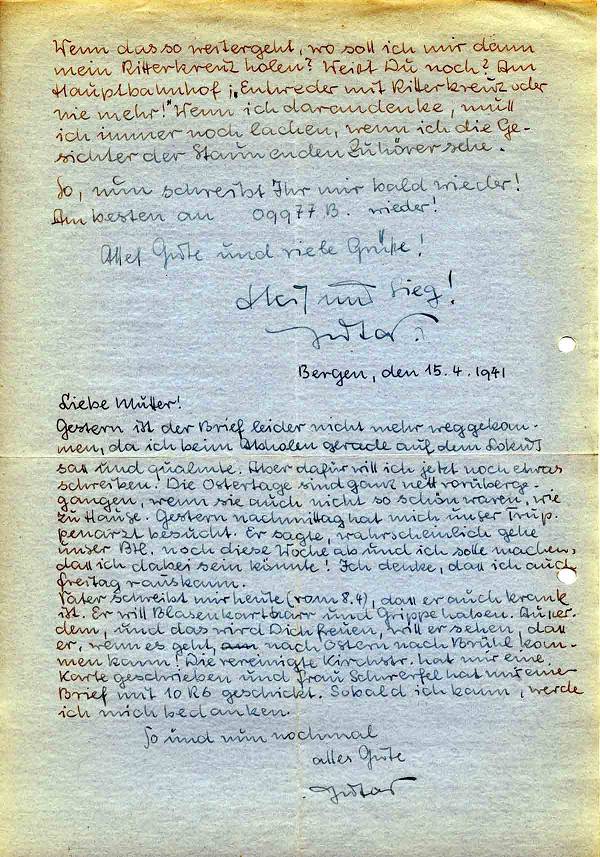 Wenn das so weitergeht, wo soll ich mir dann
mein Ritterkreuz holen? Weißt Du noch? Am
Hauptbahnhof: „Entweder mit Ritterkreuz oder
nie mehr!" Wenn ich darandenke, muß
ich immer noch lachen, wenn ich die Ge-
sichter der Staunenden Zuhörer sehe.
So, nun schreibt Ihr mir bald wieder!
Am besten an 09977 B. wieder!
Alles Gute und viele Grüße!
Heil und Sieg!
Bergen, den 15.4.1941
Liebe Mutter!
Gestern ist der Brief leider nicht mehr weggekom-
men, da ich beim Abholen gerade auf dem Lokus
saß und qualmte. Aber dafür will ich jetzt noch etwas
schreiben! Die Ostertage sind ganz nett vorüberge-
gangen, wenn sie auch nicht so schön waren, wie
zu Hause. Gestern nachmittag hat mich unser Trup-
penarzt besucht. Er sagte, wahrscheinlich gehe
unser Btl. noch diese Woche ab und ich solle machen,
daß ich dabei sein könnte! Ich denke, daß ich auch
Freitag rauskann.
Vater schreibt mir heute (vom 8.4), daß er auch krank
ist. Er will Blasenkartharr und Grippe haben. Außer-
dem, und das wird Dich freuen, will er sehen, daß
er, wenn es geht, nach Ostern nach Brühl kom-
men kann! Die vereinigte Kirchstr. hat mir eine
Karte geschrieben und Frau Schwerfel hat mir einen
Brief mit 10 R6 geschickt. Sobald ich kann, werde
ich mich bedanken.
So und nun nochmal
alles Gute